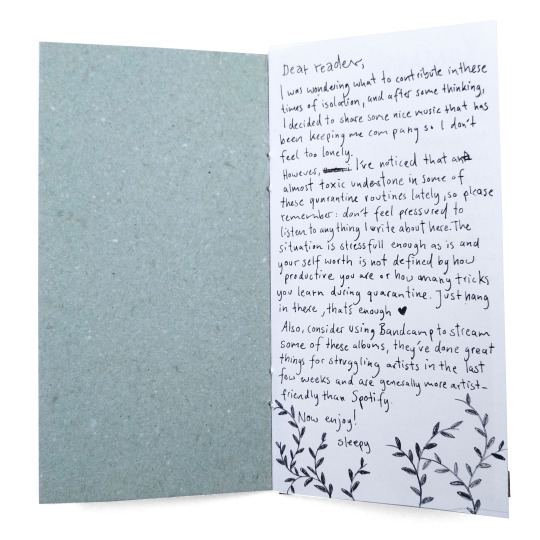 Dear reader,
I was wondering what to contribute in these
times of isolation, and after some thinking,
I decided to share some nice music that has
been keeping me company so I don't
feel too lonely.
However, I've noticed that an
almost toxic undestone in some of
these qurantine routines lately, so please
remember: don't feel pressured to
listen to anything I write about here. The
situation is stressfull enough as is and
your self worth is not defined by how
productive you are or how many tricks
you learn during quarantine. Just hang
in there, that's enough ♥
Also, consider using Bandcamp to stream
some of these albums, they've done great
things for struggling artists in the last
few weeks and are generally more artist-
friendly than Spotify.
Now enjoy!
sleepy